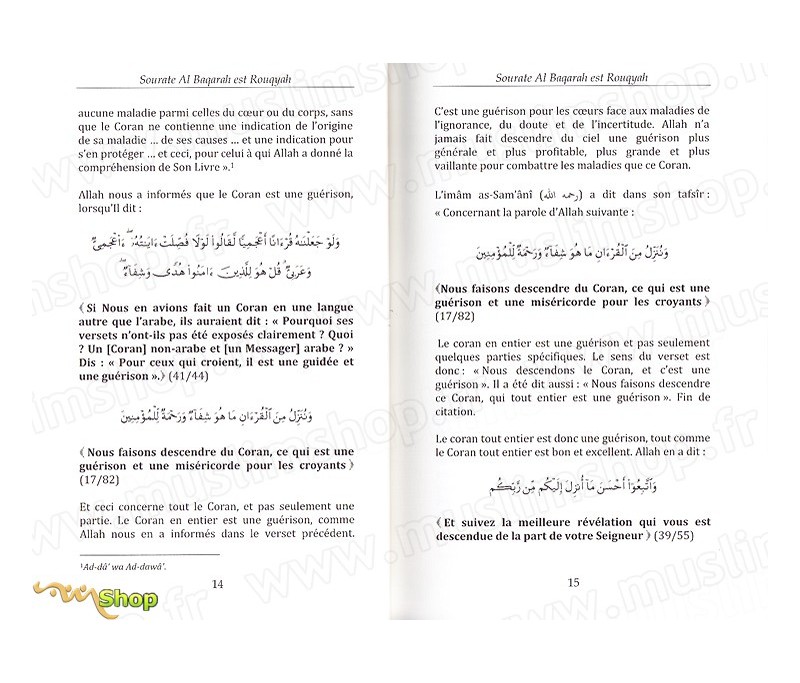 Sourate Al Baqarah est Rouqyah
aucune maladie parmi celles du cœur ou du corps, sans
que le Coran ne contienne une indication de l'origine
de sa maladie ... de ses causes ... et une indication pour
s'en protéger ... et ceci, pour celui à qui Allah a donné la
compréhension de Son Livre ».¹
Allah nous a informés que le Coran est une guérison,
lorsqu'Il dit :
وَلَوْ جَعَلْنَـٰهُ قُرْءَانًا أَعْجَمِيًّا لَّقَالُوا۟ لَوْلَا فُصِّلَتْ ءَايَـٰتُهُۥٓ ۖ ءَا۬عْجَمِىٌّ
وَعَرَبِىٌّ ۗ قُلْ هُوَ لِلَّذِينَ ءَامَنُوا۟ هُدًى وَشِفَآءٌ ۖ
﴾ Si Nous en avions fait un Coran en une langue
autre que l'arabe, ils auraient dit : « Pourquoi ses
versets n'ont-ils pas été exposés clairement ? Quoi
? Un [Coran] non-arabe et [un Messager] arabe ? »
Dis : « Pour ceux qui croient, il est une guidée et
une guérison ».﴿ (41/44)
وَنُنَزِّلُ مِنَ ٱلْقُرْءَانِ مَا هُوَ شِفَآءٌ وَرَحْمَةٌ لِّلْمُؤْمِنِينَ
﴾ Nous faisons descendre du Coran, ce qui est une
guérison et une miséricorde pour les croyants ﴿
(17/82)
Et ceci concerne tout le Coran, et pas seulement une
partie. Le Coran en entier est une guérison, comme
Allah nous en a informés dans le verset précédent.
¹Ad-dâ' wa Ad-dawâ'.
14
Shop
Sourate Al Baqarah est Rouqyah
C'est une guérison pour les cœurs face aux maladies de
l'ignorance, du doute et de l'incertitude. Allah n'a
jamais fait descendre du ciel une guérison plus
générale et plus profitable, plus grande et plus
vaillante pour combattre les maladies que ce Coran.
L'imâm as-Sam'ânî (رحمه الله) a dit dans son tafsîr :
« Concernant la parole d'Allah suivante :
وَنُنَزِّلُ مِنَ ٱلْقُرْءَانِ مَا هُوَ شِفَآءٌ وَرَحْمَةٌ لِّلْمُؤْمِنِينَ
﴾Nous faisons descendre du Coran, ce qui est une
guérison et une miséricorde pour les croyants ﴿
(17/82)
Le coran en entier est une guérison et pas seulement
quelques parties spécifiques. Le sens du verset est
donc : « Nous descendons le Coran, et c'est une
guérison ». Il a été dit aussi : « Nous faisons descendre
ce Coran, qui tout entier est une guérison ». Fin de
citation.
Le coran tout entier est donc une guérison, tout comme
le Coran tout entier est bon et excellent. Allah en a dit :
وَٱتَّبِعُوٓا۟ أَحْسَنَ مَآ أُنزِلَ إِلَيْكُم مِّن رَّبِّكُم
﴾ Et suivez la meilleure révélation qui vous est
descendue de la part de votre Seigneur ﴿ (39/55)
15
www.muslimshop.fr